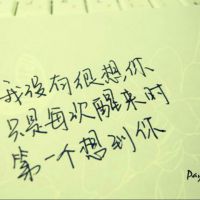 我没有很想你
只是再次醒来时
第一个想到你